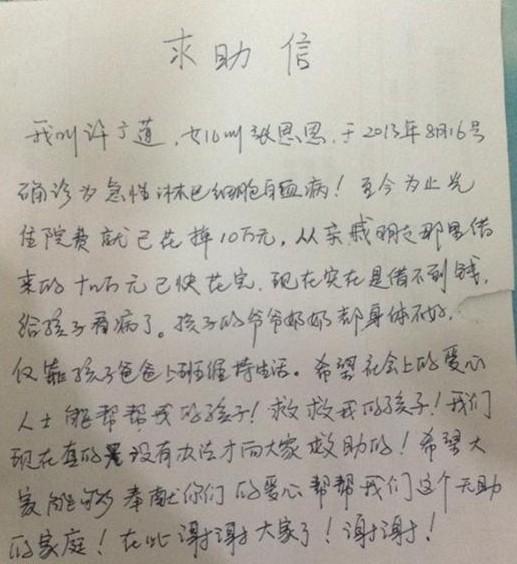 求助信
我叫许道，女儿叫张恩恩，于2013年8月16号
确诊为急性淋巴细胞白血病！至今为止光
住院费就已花掉10万元，从亲戚朋友那里借
来的十几万元已快花完，现在实在是借不到钱，
给孩子看病了。孩子的爷爷奶奶都身体不好，
仅靠孩子爸爸上班维持生活。希望社会上的爱心
人士能帮帮我的孩子！救救我的孩子！我们
现在真的是没有办法才向大家救助的！希望大
家能够奉献你们的爱心帮帮我们这个无助
的家庭！在此谢谢大家了！谢谢！